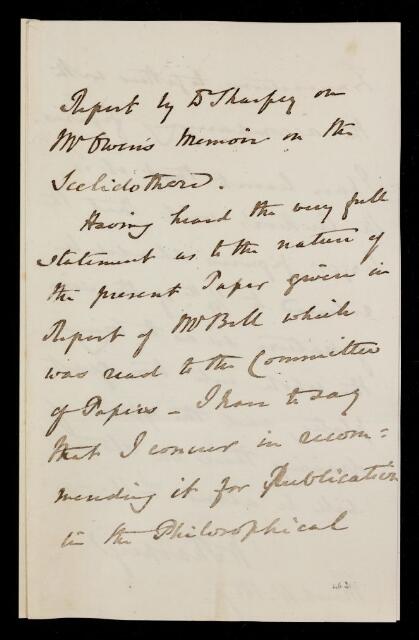 Report by Dr Sharpey on
Mr Owen's Memoir on the
Scelidothere.
Having heard the very full
statement as to the nature of
the present Paper given in
Report of Mr Bell which
was read to the Committee
of Papers – I have to say
that I concur in recom=
mending it for Publication
in the Philosophical